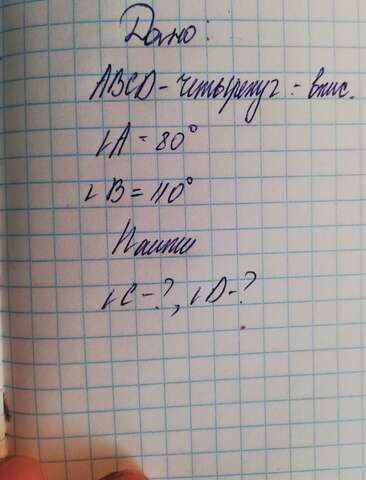 Дано:
ABCD - четырехуг - впис.
∠A = 80°
∠B = 110°
Найти
∠C - ?, ∠D - ?